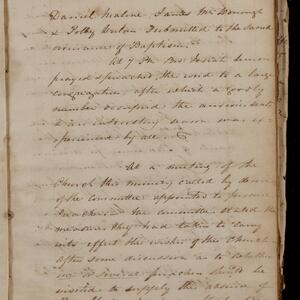 Daniel Malone James McDonough
& Polly Submitted to the Sacred
ordinance of Baptism.
At 7 PM Bro Josiah
prayed & preached the word to a large
congregation, after which a goodly
number occupied the anxious seats
& an interesting season was ex
perienced by all.
At a meeting of the
Church this morning called by desire
of the committee appointed to procure
Preachers the committee stated the
measures they had taken to carry
into effect the wishes of the Church
After some discussion as to whether
preachers should be
invited to supply the absence of